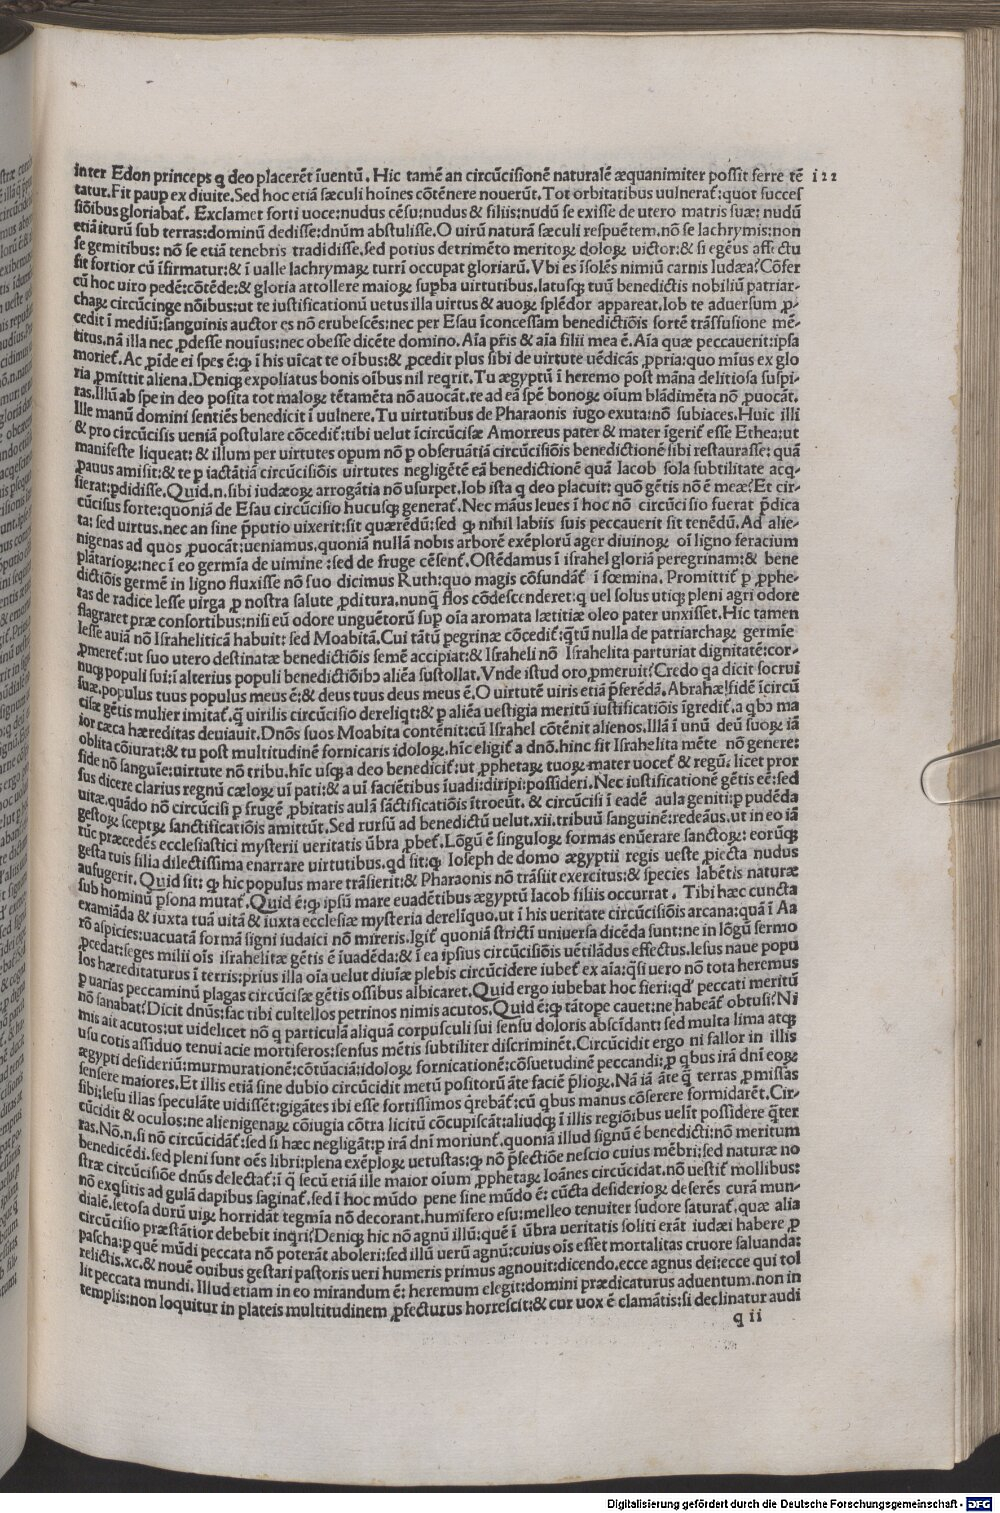 inter Edon princeps q deo placerēt iuentū. Hic tamē an circūcisionē naturalē æquanimiter possit ferre tē
tatur. Fit paup ex diuite. Sed hoc etiā sæculi hoīnes cōtēnere nouerūt. Tot orbitatibus uulneraṫ: quot succes
siōibus gloriabaṫ. Exclamet forti uoce: nudus cēsu: nudus & filiis: nudū se exisse de utero matris suæ: nudū
etiā iturū sub terras: dominū dedisse: dnūm abstulisse. O uirū naturā sæculi respuētem. nō se lachrymis: non
se gemitibus: nō se etiā tenebris tradidisse. sed potius detrimēto meritoꝝ doloꝝ uictor: & si egēus affectu
fit fortior cū īfirmatur: & ī ualle lachrymaꝝ turrī occupat gloriarū. Vbi es īsolēs nimiū carnis Iudæa? Cōfer
cū hoc uiro pedē: cōtēde: & gloria attollere maioꝝ supba uirtutibus. latusqꝫ tuū benedictis nobiliū patriar-
chaꝝ circūcinge nōibus: ut te iustificationū uetus illa uirtus & auoꝝ splēdor appareat. Iob te aduersum ꝓ-
cedit ī mediū: sanguinis auctor es nō erubescēs: nec per Esau īconcessam benedictiōis sortē trāssusione mē-
titus. nā illa nec ꝓdesse nouius: nec obesse dicēte domino. Aīa pr̄is & aīa filii mea ē. Aīa quæ peccauerit: ipsa
morieṫ. Ac ꝓide ei spes ē: ꝙ ī his uīcat te oībus: & ꝓcedit plus sibi de uirtute uēdicās ꝓpria: quo mīus ex glo
ria ꝓmittit aliena. Deniqꝫ expoliatus bonis oībus nil reqrit. Tu ægyptū ī heremo post māna delitiosa suspi-
ras. Illū ab spe in deo posita tot maloꝝ tētamēta nō auocāt. te ad eā spē bonoꝝ oīum blādimēta nō ꝓuocāt.
Ille manū domini sentiēs benedicit ī uulnere. Tu uirtutibus de Pharaonis iugo exuta: nō subiaces. Huic illi
& pro circūcisis ueniā postulare cōcediṫ: tibi uelut īcircūcisæ Amorreus pater & mater īgeriṫ esse Ethea: ut
manifeste liqueat: & illum per uirtutes opum nō ꝑ obseruātiā circūcisiōis benedictionē sibi restaurasse: quā
ꝓauus amisit: & te ꝑ iactātiā circūcisiōis uirtutes negligētē eā benedictionē quā Iacob sola subtilitate acq-
sierat: ꝑdidisse. Quid. n. sibi iudæoꝝ arrogātia nō usurpet. Iob ista q deo placuit: quō gētis nō ē meæ? Et cir-
cūcisus forte: quoniā de Esau circūcisio hucusqꝫ generaṫ. Nec māus leues ī hoc nō circūcisio fuerat ꝑdica
ta: sed uirtus. nec an sine ꝑputio uixerit: sit quærēdū: sed ꝙ nihil labiis suis peccauerit sit tenēdū. Ad alie-
nigenas ad quos ꝓuocāt: ueniamus. quoniā nullā nobis arborē exēplorū ager diuinoꝝ oī ligno feracium
plātarioꝝ: nec ī eo germīa de uimine: sed de fruge cēsenṫ. Ostēdamus ī israhel gloriā peregrinam: & bene
dictiōis germē in ligno fluxisse nō suo dicimus Ruth: quo magis cōfundāṫ ī fœmina. Promittiṫ ꝑ ꝓphe-
tas de radice Iesse uirga ꝓ nostra salute ꝓditura. nunq̄ flos cōdescenderet: q uel solus utiqꝫ pleni agri odore
flagraret præ consortibus: nisi eū odore unguētorū sup oīa aromata lætitiæ oleo pater unxisset. Hic tamen
Iesse auiā nō Israheliticā habuit: sed Moabitā. Cui tātū pegrinæ cōcediṫ: q̄tū nulla de patriarchaꝝ germīe
ꝓmereṫ: ut suo utero destinatæ benedictiōis semē accipiat: & Israheli nō Israhelita parturiat dignitatē: cor-
nuqꝫ populi sui: ī alterius populi benedictiōibɔ aliēa sustollat. Vnde istud oro ꝓmeruit? Credo qa dicit socrui
suæ. populus tuus populus meus ē: & deus tuus deus meus ē. O uirtutē uiris etiā ꝑferēdā. Abrahæ! fidē īcircū
cisæ gētis mulier imitaṫ. q̄ uirilis circūcisio dereliqt: & ꝑ aliēa uestigia meritū iustificatiōis īgrediṫ. a qbɔ ma
ior cæca hæreditas deuiauit. Dnōs suos Moabita contēnit: cū Israhel cōtēnit alienos. Illā ī unū deū suoꝝ iā
oblita cōiurat: & tu post multitudinē fornicaris idoloꝝ. hīc eligiṫ a dnō. hinc fit Israhelita mēte nō genere:
fide nō sanguīe: uirtute nō tribu. hīc usqꝫ a deo benediciṫ: ut ꝓphetaꝝ tuoꝝ mater uoceṫ & regū: licet pror
sus dicere clarius regnū cæloꝝ uī pati: & a uī faciētibus īuadi: diripi: possideri. Nec iustificationē gētis eē: sed
uitæ. quādo nō circūcisi ꝑ frugē ꝓbitatis aulā sāctificatiōis ītroeūt. & circūcisi ī eadē aula geniti: ꝑ pudēda
gestoꝝ sceptꝝ sanctificatiōis amittūt. Sed rursū ad benedictū uelut. xii. tribuū sanguinē: redeāus. ut in eo iā
tūc præcedēs ecclesiastici mysterii ueritatis ūbra ꝓbeṫ. Lōgū ē singuloꝝ formas enūerare sanctoꝝ: eorūqꝫ
gesta tuis filia dilectissima enarrare uirtutibus. qd sit: ꝙ Ioseph de domo ægyptii regis ueste ꝓiecta nudus
aufugerit. Quid sit: ꝙ hic populus mare trāsierit: & Pharaonis nō trāsiit exercitus: & species labētis naturæ
sub hominū ꝑsona mutaṫ. Quid ē: ꝙ ipsū mare euadētibus ægyptū Iacob filiis occurrat. Tibi hæc cuncta
examiāda & iuxta tuā uitā & iuxta ecclesiæ mysteria derelīquo. ut ī his ueritate circūcisiōis arcana: quā ī Aa
rō aspicies: uacuatā formā signi iudaici nō mireris. Igiṫ quoniā strictī uniuersa dicēda sunt: ne in lōgū sermo
ꝓcedat: seges milii oīs israhelitæ gētis ē īuadēda: & ī ea ipsius circūcisiōis uētilādus effectus. Iesus naue popu
los hæreditaturus ī terris: prius illa oīa uelut diuiæ plebis circūcidere iubeṫ ex aīa: q̄si uero nō tota heremus
ꝑ uarias peccaminū plagas circūcisæ gētis ossibus albicaret. Quid ergo iubebat hoc fieri: qd' peccati meritū
nō sanabat? Dicit dnūs: fac tibi cultellos petrinos nimis acutos. Quid ē: ꝙ tātope cauet: ne habeāṫ obtusi? Ni
mis ait acutos: ut uidelicet nō q particulā aliquā corpusculi sui sensu doloris abscīdant: sed multa lima atqꝫ
usu cotis assiduo tenui acie mortiferos: sensus mētis subtiliter discriminēt. Circūcidit ergo ni fallor in illis
ægypti desideriū: murmurationē: cōtūaciā: idoloꝝ fornicationē: cōsuetudinē peccandi: ꝑ qbus irā dnī eoꝝ
sensere maiores. Et illis etiā sine dubio circūcidit metū positorū āte faciē ꝑlioꝝ. Nā iā āte q̄ terras ꝓmissas
sibi: Iesu illas speculāte uidissēt: gigātes ibi esse fortissimos q̄rebāṫ: cū qbus manus cōserere formidarēt. Cir-
cūcidit & oculos: ne alienigenaꝝ cōiugia cōtra licitū cōcupiscāt: aliudqꝫ ī illis regiōibus uelīt possidere q̄ter
ras. Nō. n. si nō circūcidāṫ: sed si hæc negligāt: ꝑ irā dnī moriunṫ. quoniā illud signū ē benedicti: nō meritum
benedicēdi. sed pleni sunt oēs libri: plena exēploꝝ uetustas: ꝙ nō ꝑfectiōe nescio cuius mēbri: sed naturæ no
stræ circūcisiōe dnūs delectaṫ: ī q̄ secū etiā ille maior oīum ꝓphetaꝝ Ioānes circūcidat. nō uestiṫ mollibus:
nō exqsitis ad gulā dapibus saginaṫ. sed ī hoc mūdo pene sine mūdo ē: cūcta desiderioꝝ deserēs curā mun-
dialē. setosa durū uiꝝ horridāt tegmīa nō decorant. humifero esu: melleo tenuiter sudore saturaṫ. quæ alia
circūcisio præstātior debebit inqri? Deniqꝫ hic nō agnū illū: quē ī ūbra ueritatis soliti erāt iudæi habere ꝓ
pascha: ꝑ quē mūdi peccata nō poterāt aboleri: sed illū uerū agnū: cuius oīs esset mortalitas cruore saluanda:
relictis. xc. & nouē ouibus gestari pastoris ueri humeris primus agnouit: dicendo. ecce agnus dei: ecce qui tol
lit peccata mundi. Illud etiam in eo mirandum ē: heremum elegit: domini prædicaturus aduentum. non in
templis: non loquitur in plateis multitudinem ꝓfecturus horrescit: & cur uox ē clamātis: si declinatur audi
q ii
Digitalisierung gefördert durch die Deutsche Forschungsgemeinschaft - DFG